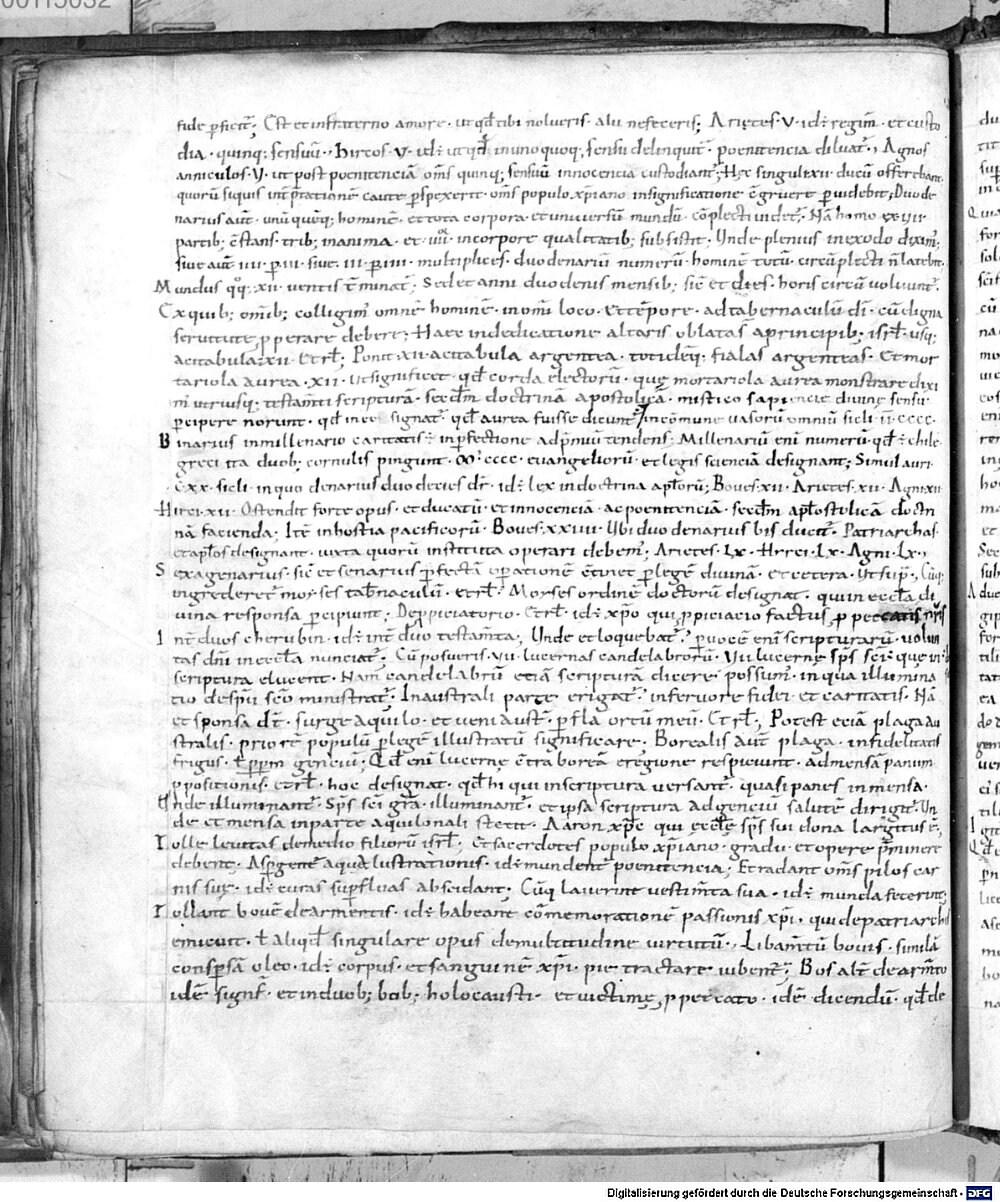 00115032
fide ꝑficit̄; Est et in fraterno amore · ut qđ tibi nolueris · alii ne feceris; Arietes · V · id ÷ regim̄ · et custo
dia · quinq; sensuū · Hircos · V · id ÷ ut qđ in unoquoq; sensu delinquit̄ · poenitencia diluat̄ · Agnos
anniculos · V · ut post poenitenciā om̄s quinq; sensuū innocencia custodiant̄; Hęc singula xii ducū offerebant
quorū si quis int̄p̄tationē caute ꝑspexerit · om̄s populo xp̄iano in significatione  ꝑuidebit; Duode
narius aut̄ · unū quēq; hominē · et tota corpora · et uniuersū mundū · cōplecti uidet̄; Nā homo ex iiii
partib; c̄stans · trib; in anima · et iiiior in corpore qualitatib; subsistit · Unde plenius in exodo dixim̄;
siue aut̄ iiii ꝑ iii · siue · iii · ꝑ iiii · multiplices · duodenariū numerū · hominē totū · circūplecti n̄ latebit ·
Mundus qq; · xii · uentis t̄minat̄; Sed et anni duodenis mensib; · sic̄ et dies · horis circū uoluunt̄ ·
Ex quib; om̄ib; colligim̄ omnē hominē · in om̄i loco · et tēpore · ad tabernaculū dī · cū digna
seruitute ꝓperare debere; Haec in dedicatione altaris oblata s̄ a principib; isrl̄ · usq;
acitabula · xii · Et rl̄; Ponit · xii · acitabula argentea · totidēq; fialas argenteas · Et mor
tariola aurea · xii · ut significet · qđ corda electorū · quę mortariola aurea monstrare dixi
m̄ utriusq; testam̄ti scripturā · sec̄dm doctrinā apostolicā · mistico sapiencie diuinę sensu
ꝑcipere norunt · qđ in eo signat̄ · qđ aurea fuisse dicunt̄; In cōmune uasorū omniū sicli · ii · cccc ·
Binarius in millenario caritatis ÷ in ꝑfectione ad p̄mū tendens; Millenariū eni numerū · qđ ÷ chile
greci ita duob; cornulis pingunt · cccc · euangeliorū · et legis scienciā designant; Simul auri
cxx · sicli · in quo denarius duodecies dr̄ · id ÷ lex in doctrina apl̄orū; Boues · xii · Arietes · xii · Agni · xii
Hirci · xii · Ostendit forte opus · et ducatū · et innocenciā · ac poenitenciā · sec̄dm apl̄ostolicā doctri
nā facienda; Itē in hostia pacificorū · Boues · xxiiii · Ubi duodenarius bis ducit̄ · Patriarchas ·
et apl̄os designant · iuxta quorū instituta operari debem̄; Arietes · Lx · Hirci · Lx · Agni · Lx ·
Sexagenarius · sic̄ et senarius ꝑfectā oꝑationē c̄tinet ꝑ legē diuinā · et cetera · ut sup̄ · Cūq;
ingrederet̄ moyses tab̄naculū · et rl̄ · Moyses ordinē doctorū designat · qui in eccl̄a di
uina responsa ꝑcipiunt · De ꝓpiciatorio · Et rl̄ · id ÷ xp̄o qui ꝓpiciacio factus ÷ ꝓ peccatis nr̄is
Int̄ duos cherubin · id ÷ int̄ duo testam̄ta; Unde et loquebat̄; ꝑ uocē eni scripturarū · uolun
tas dn̄i in eccl̄a nunciat̄; Cū posueris · vii · lucernas candelabrorū · Vii lucernę sp̄s sci ÷ quę in
scriptura elucent · Nam candelabrū etiā scripturā dicere possum̄ · in qua illumina
tio de sp̄u sc̄o ministrat̄; In australi parte erigat̄ · in feruore fidei et caritatis · Nā
et sponsa dr̄ · surge aquilo · et ueni aust̄ · ꝑfla ortū meū · Et rl̄; Potest eciā plaga au
stralis · priorē populū ꝑ legē illustratū significare; Borealis aut̄ plaga · infidelitatis
frigus · ł p̄pm genciū; Qđ eni lucernę c̄tra boreā e regione respiciunt · ad mensā panum
ꝓpositionis · et rl̄ · hoc designat · qđ hi qui in scriptura uersant̄ · quasi panes in mensa ·
Inde illuminant̄ · Sp̄s sci grā illuminant̄ · et ipsa scriptura ad genciū salutē dirigit̄ Un
de et mensa in parte aquilonali stetit · Aaron xp̄c qui eccl̄ę sp̄s sui dona largitus ē ·
Tolle leuitas de medio filiorū isrl̄ · Et sacerdotes populo xp̄iano · gradu et opere p̄minere
debent · Asꝑgent̄ aqua lustrationis · id ÷ mundent̄ poenitencia; Et radant om̄s pilos car
nis suę · id ÷ curas suꝑfluas abscidant; Cūq; lauerint uestim̄ta sua · id ÷ munda fecerint
Tollant bouē de armentis · id ÷ habeant cōmemorationē passionis xp̄i · qui de patriarchis
emicuit · ł aliqđ singulare opus de multitudine uirtutū · Libam̄tū bouis · similā
consꝑsā oleo · id ÷ corpus · et sanguinē xp̄i · pie tractare iubent̄; Bos alt̄ de arm̄to
idē signif̄ · et in duob; bob; holocausti · et uictimę ꝓ peccato · idē dicendū · qđ de
Digitalisierung gefördert durch die Deutsche Forschungsgemeinschaft · DFG